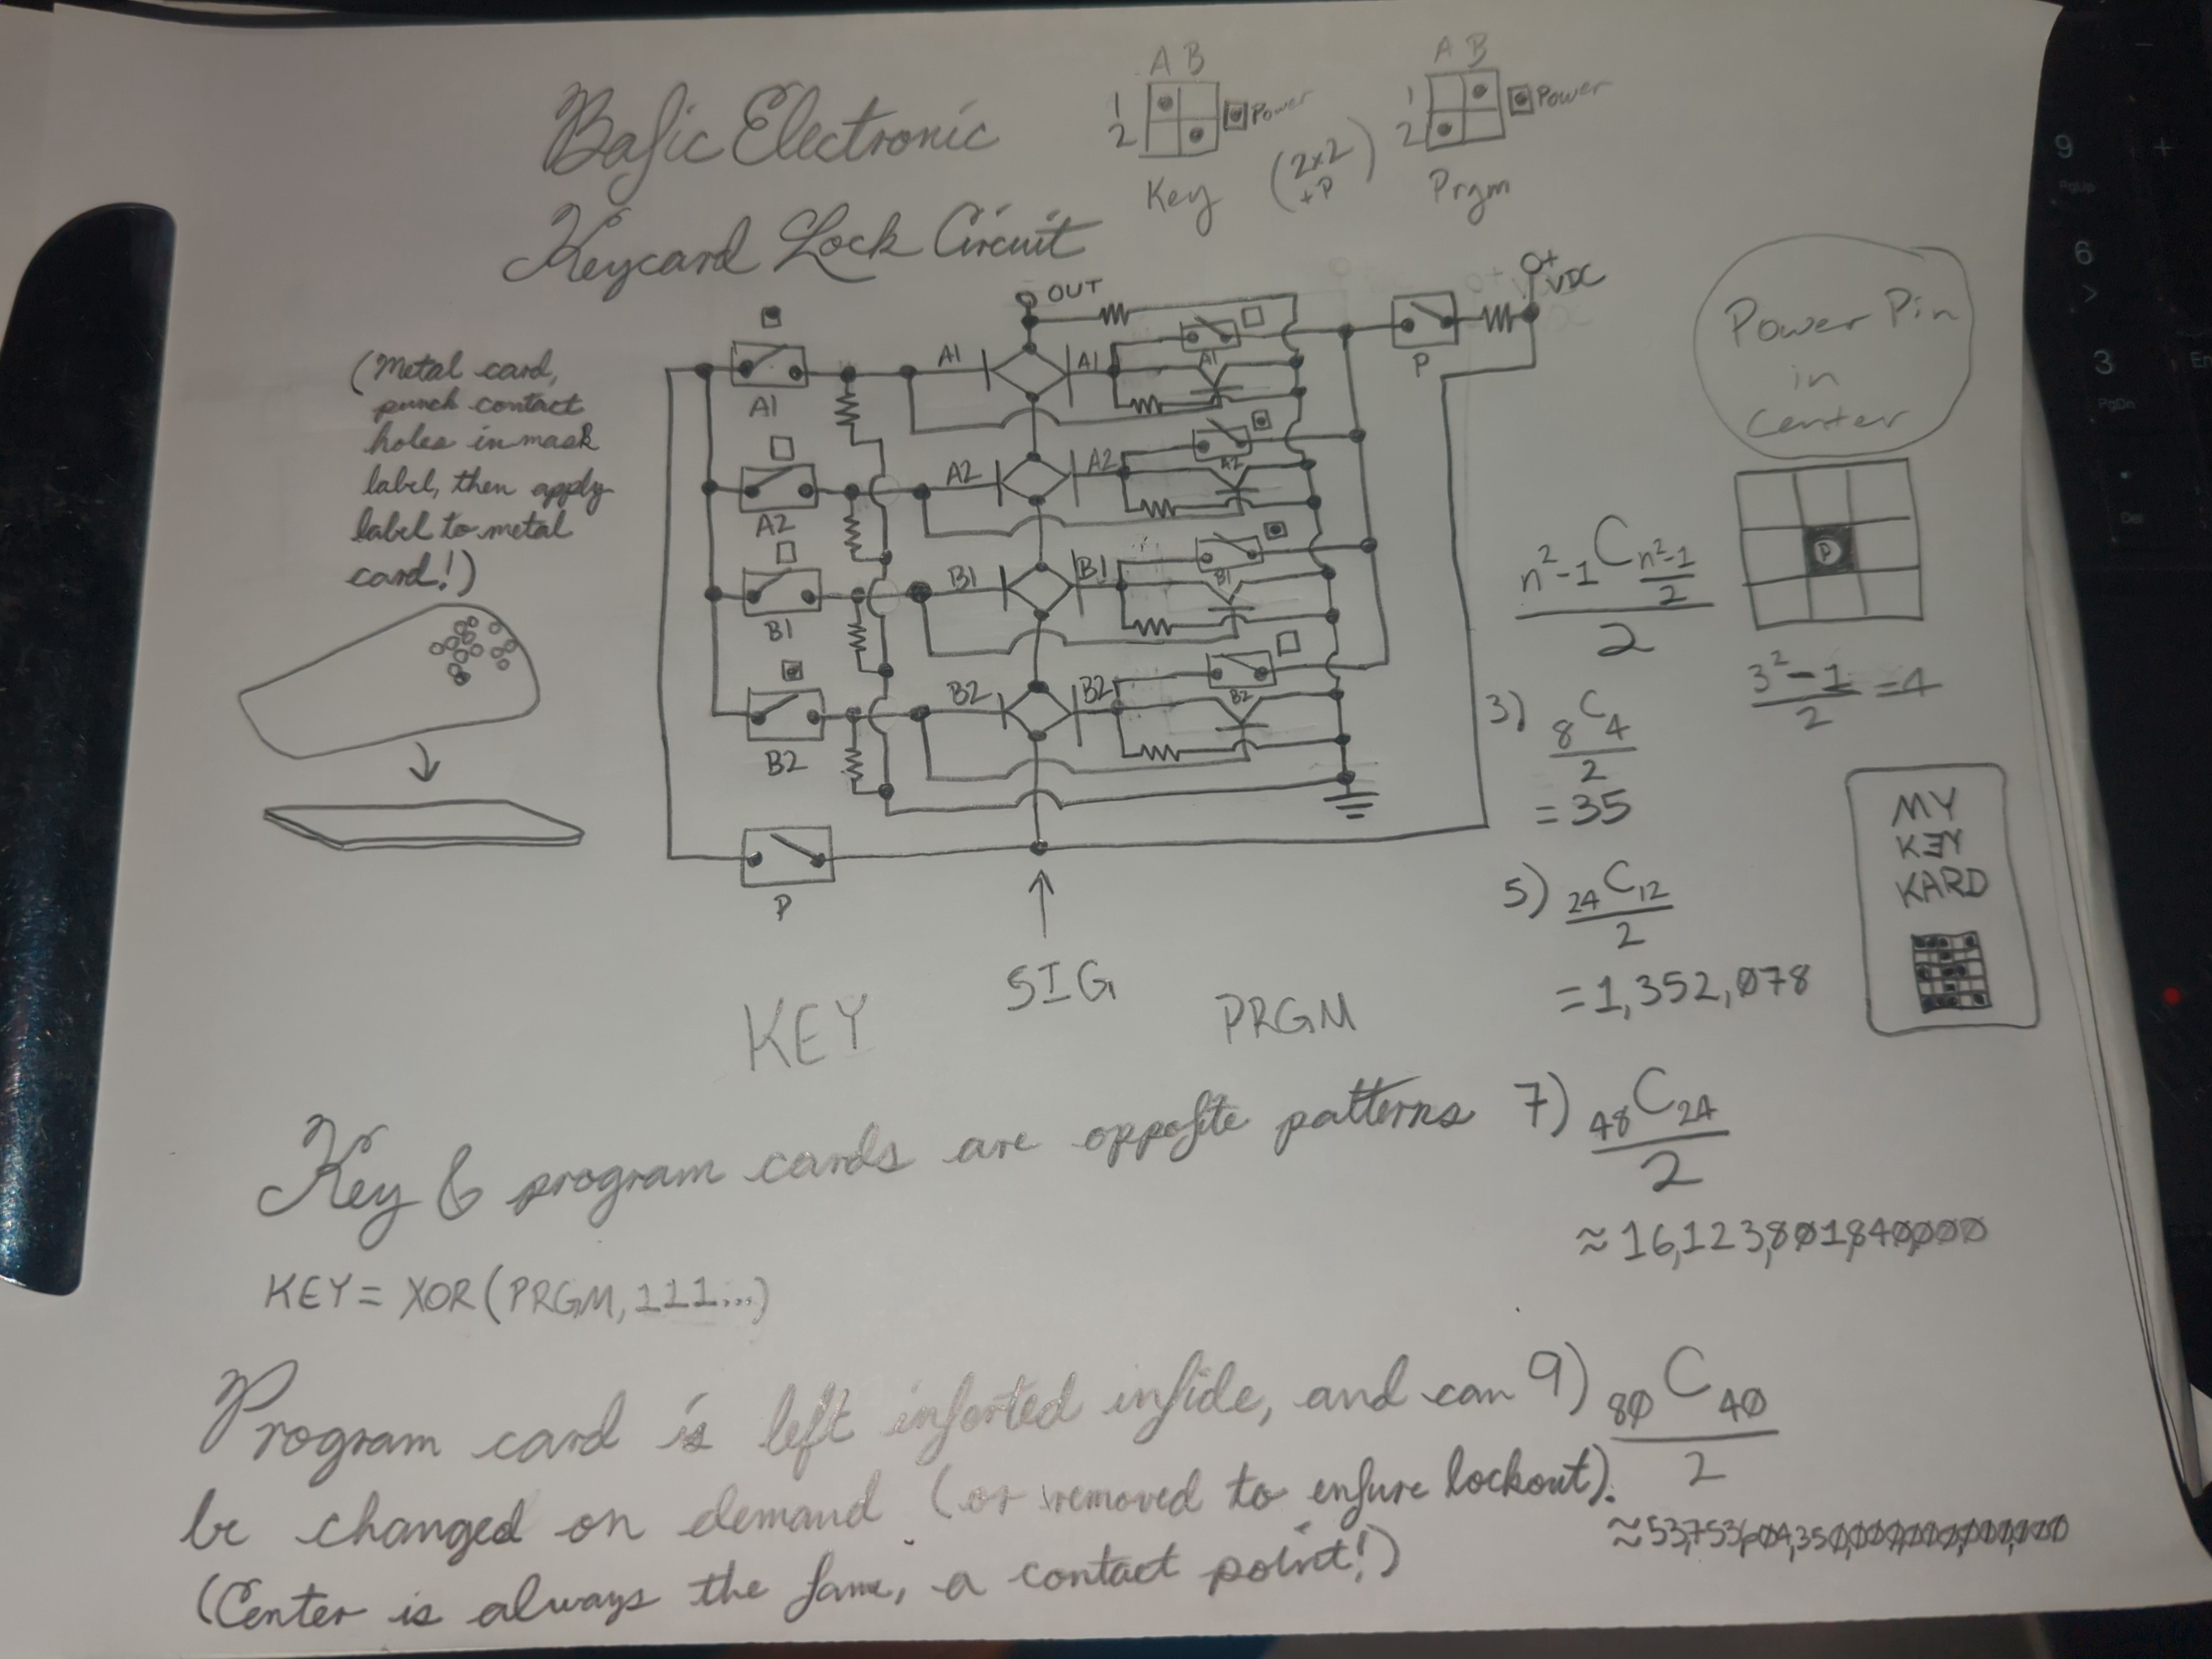 Baſic Electronic
Keycard Lock Circuit
A B
1
2
Power
Key
(2x2
+P)
A B
1
2
Power
Prgm
(Metal card,
punch contact
holes in mask
label, then apply
label to metal
card!)
OUT
+
VDC
P
A1
A1
A1
A1
A2
A2
A2
A2
B1
B1
B1
B1
B2
B2
B2
B2
P
SIG
KEY
PRGM
Power Pin
in
Center
P
n²-1 C n²-1/2
2
3²-1/2 = 4
3) 8C4
2
= 35
5) 24C12
2
= 1,352,078
MY
KEY
KARD
Key & program cards are oppoſite patterns
7) 48C24
2
≈ 16,123,801,840,000
KEY = XOR(PRGM, 111...)
Program card is left inſerted inſide, and can
be changed on demand (or removed to enſure lockout).
(Center is always the ſame, a contact point!)
9) 80C40
2
9
6
>
3